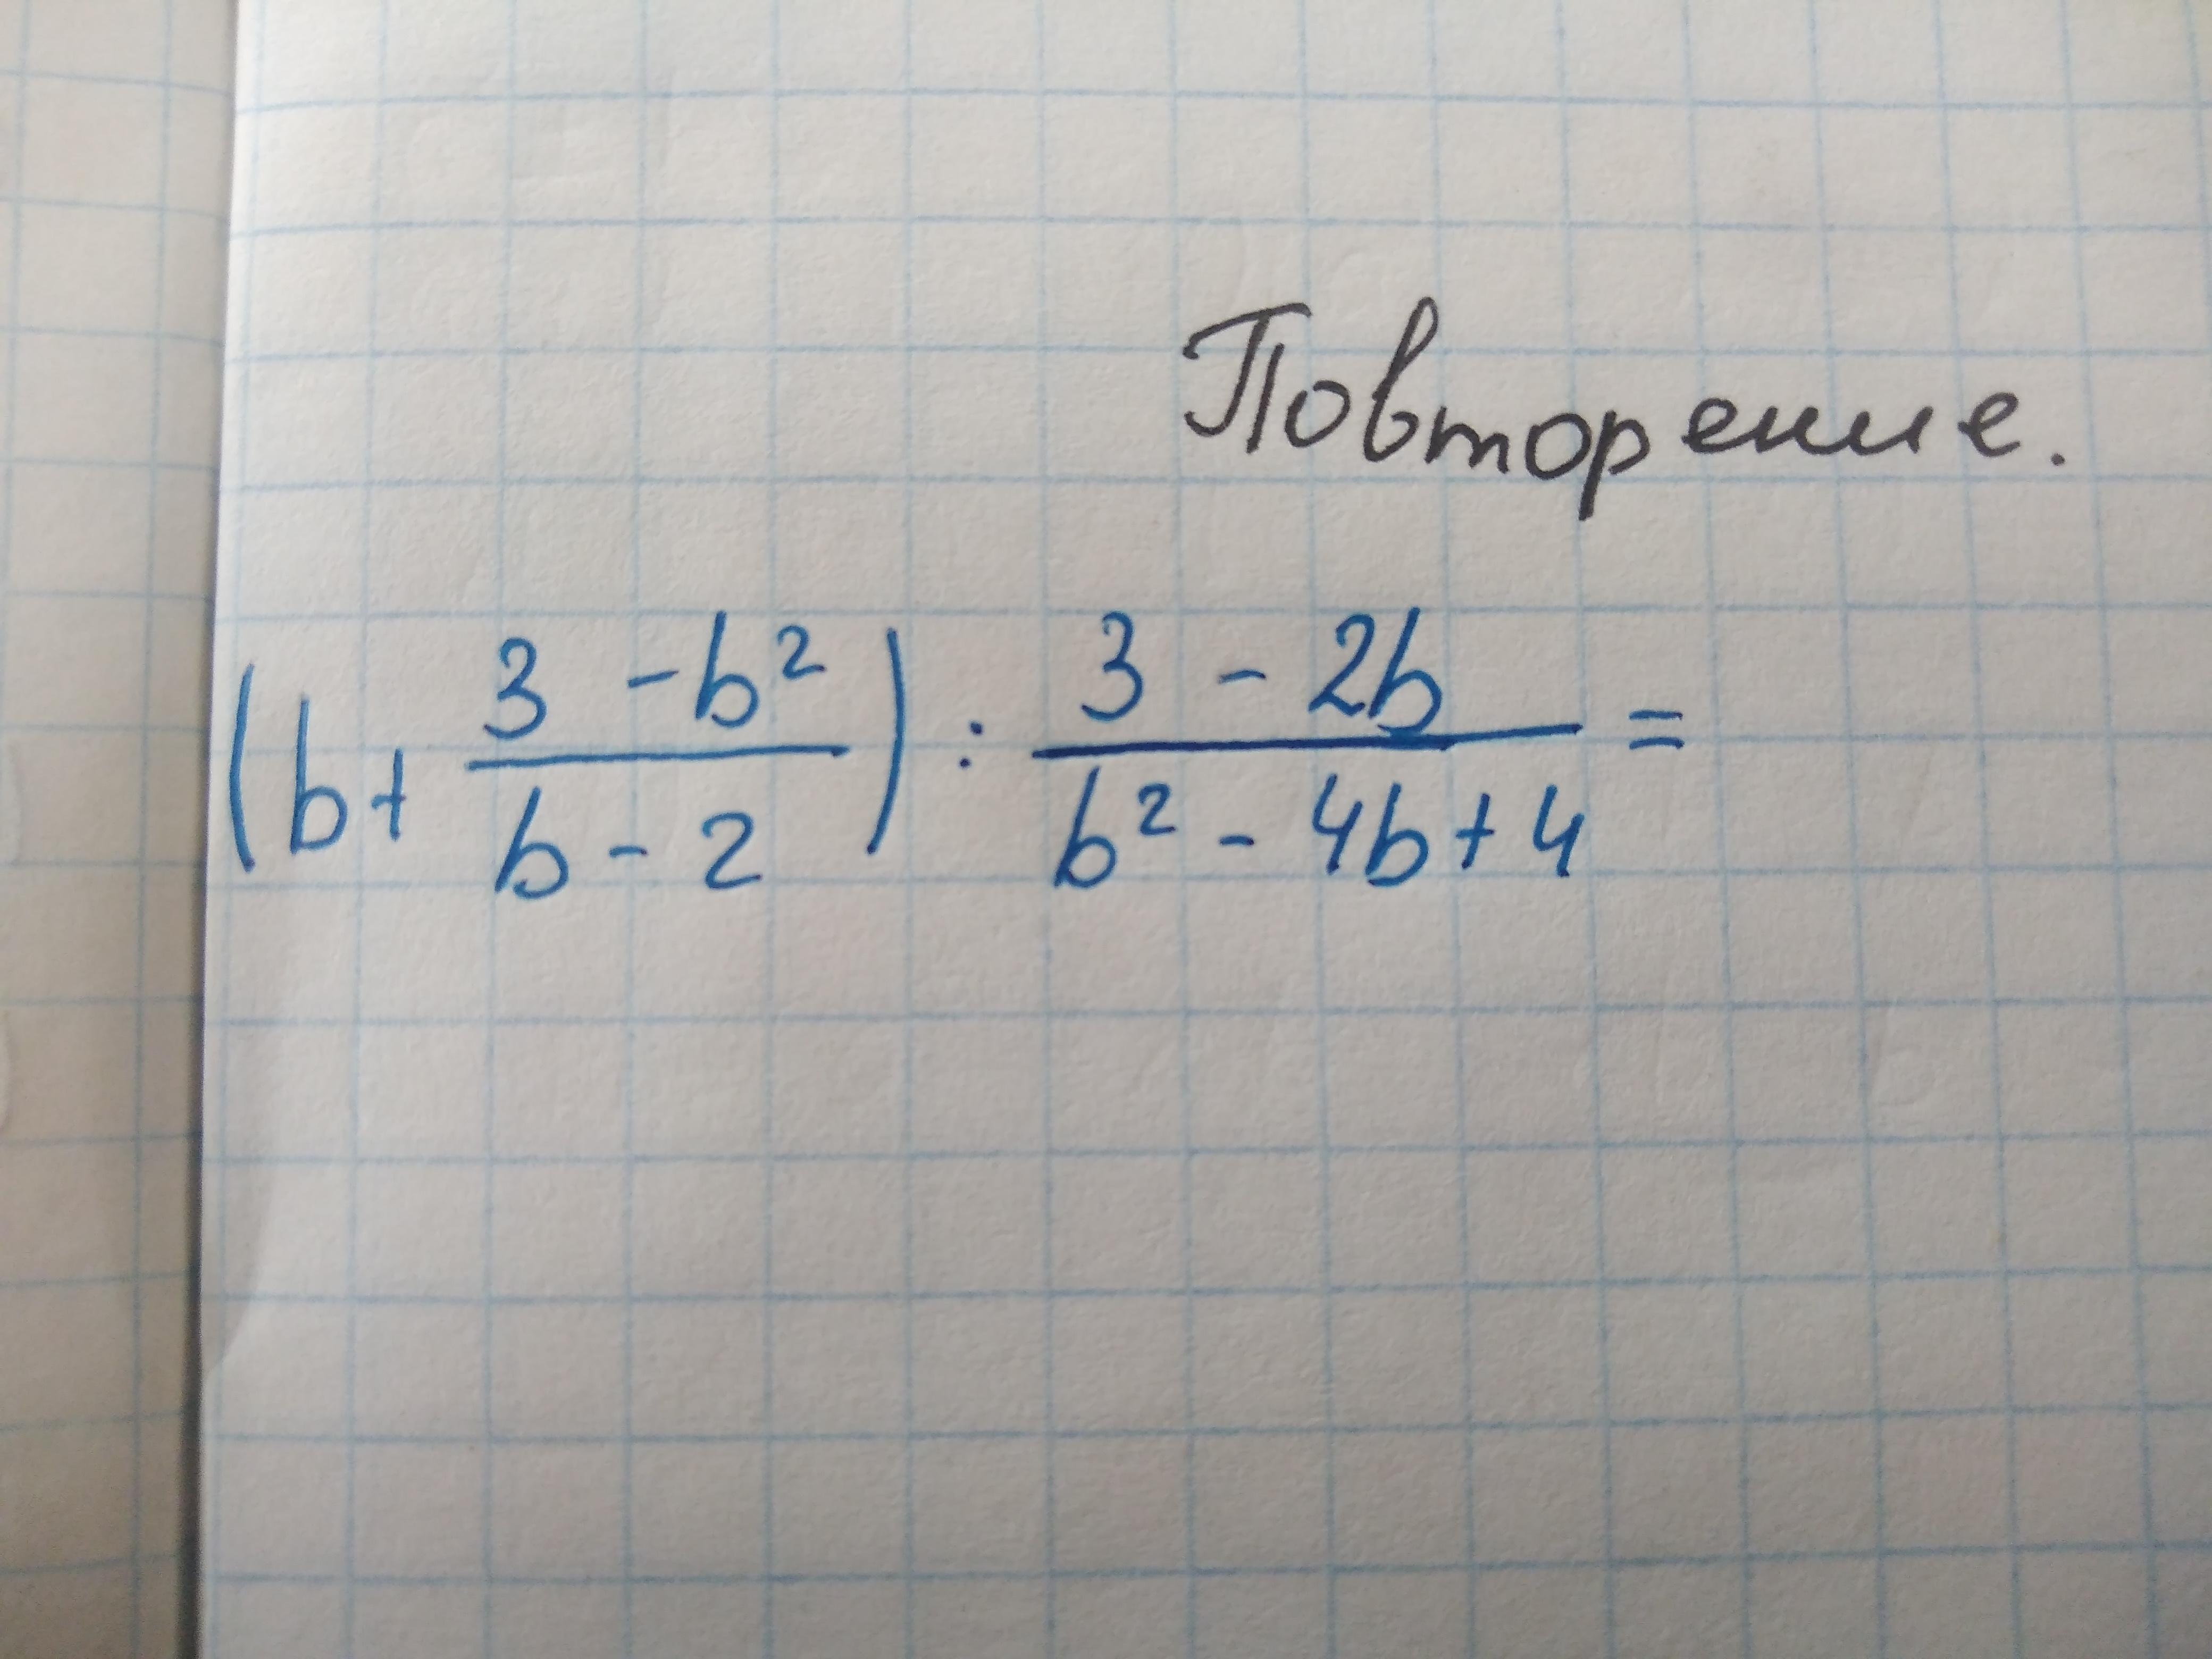 Повторение.
(b + \frac{3 - b²}{b - 2}) : \frac{3 - 2b}{b² - 4b + 4} =